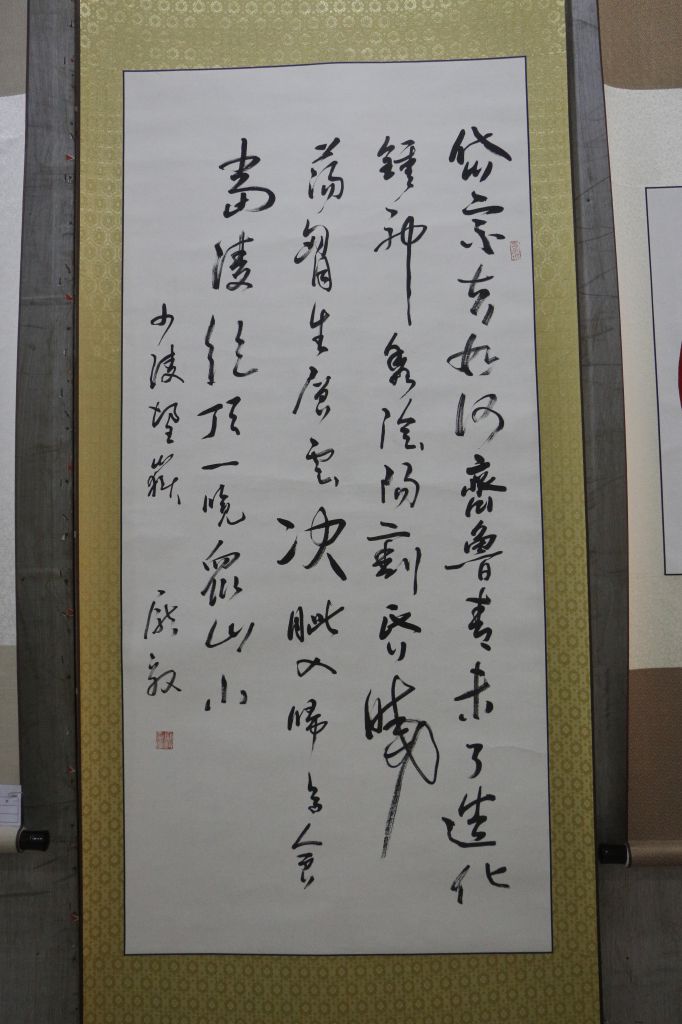 岱宗夫如何齊魯青未了造化
鍾神秀陰陽割昏曉
蕩胷生層雲决眦入歸鳥會
當陵絕頂一覽眾山小
少陵望嶽